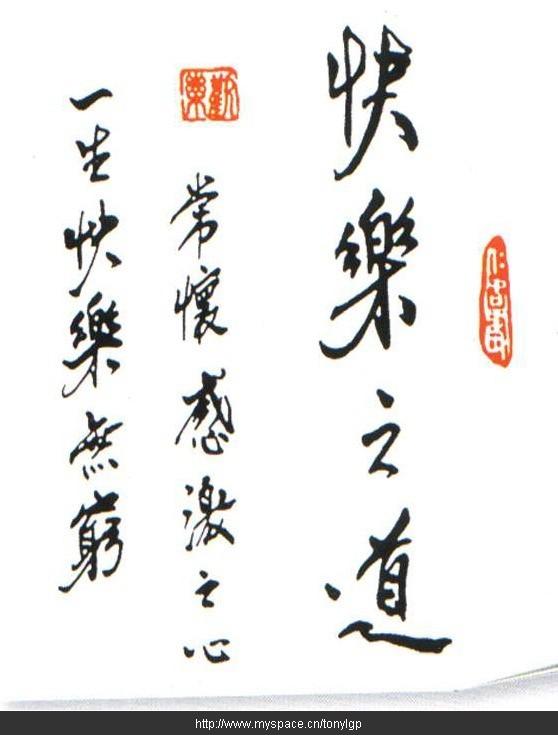 快樂之道
常懷感激之心
一生快樂無窮
http://www.myspace.cn/tonylgp